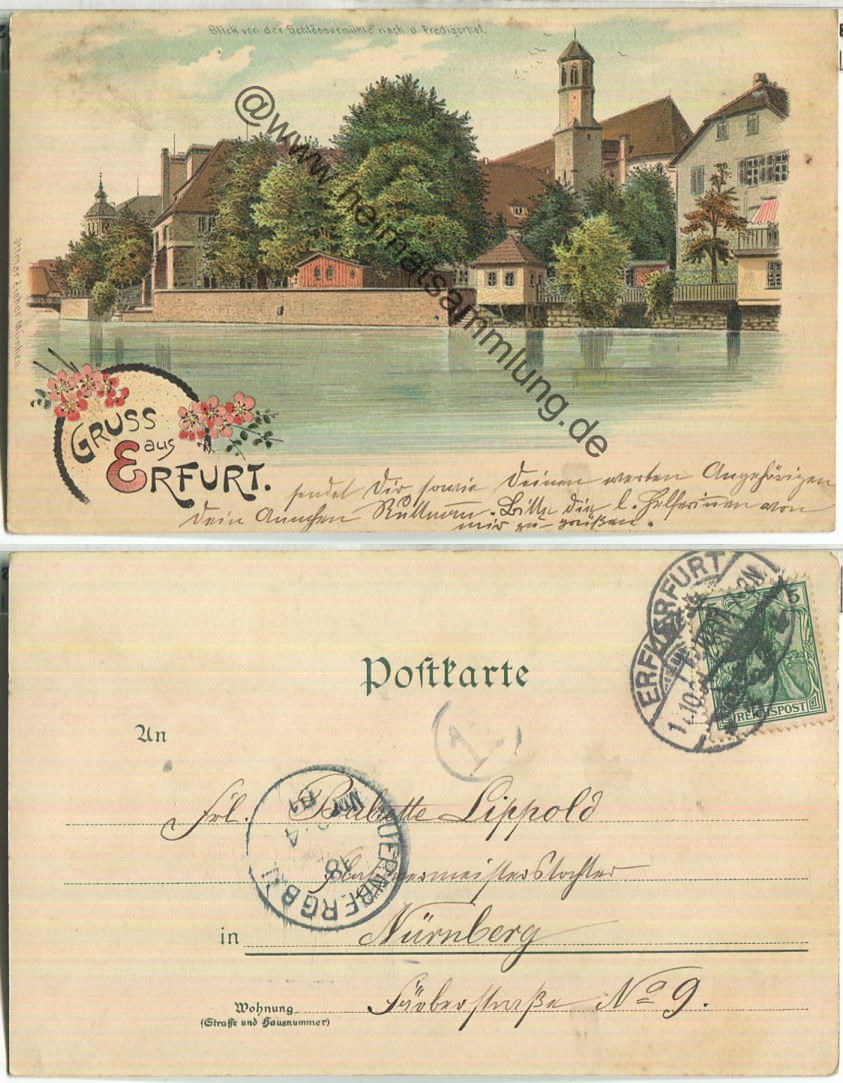 Blick von der Schlössermühle nach d. Predigerhof.
@www.heimatsammlung.de
GRUSS
aus
ERFURT.
sendet Dir sowie Deinen werten Angehörigen
Dein Annchen Bitte die l. Helferinnen von
mir zu grüßen.
Postkarte
ERFURT
ERFURT
5
REICHSPOST
An
Frl. Babette Lippold
NUERNBERG
in Nürnberg
Wohnung
(Straße und Hausnummer)
Färberstraße No 9.